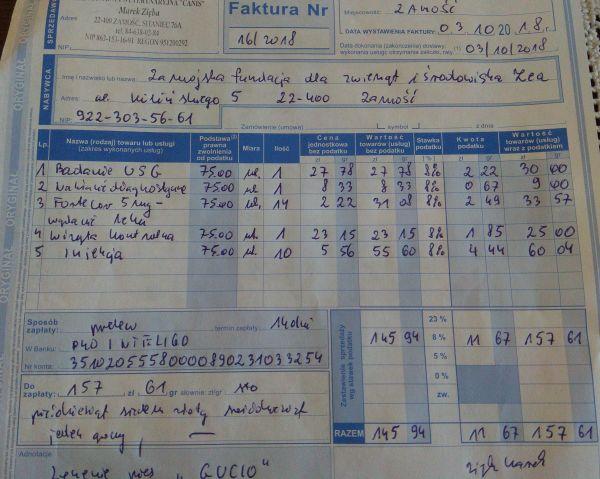 "CANIS"
Marek Zięba
Adres 22-400 ZAMOŚĆ, SITANIEC 76A
tel. 84-638-02-84
NIP 863-151-16-91 REGON 951200292
SPRZEDAWCA
NIP:
Faktura Nr
16/2018
Miejscowość: ZAMOŚĆ
DATA WYSTAWIENIA FAKTURY: 03.10 20 18 r.
Data dokonania (zakończenia) dostawy,
wykonania usługi, otrzymania zaliczki, raty 03/10/2018
ORYGINAŁ
NABYWCA
Imię i nazwisko lub nazwa: Zamojska fundacja dla zwierząt i środowiska Zea
Adres: ul. Kilińskiego 5 22-400 Zamość
NIP: 922-303-56-61
Zamówienie (umowa) symbol z dnia
Lp. Nazwa (rodzaj) towaru lub usługi (zakres wykonanych usług) Podstawa prawna zwolnienia od podatku Miara Ilość Cena jednostkowa bez podatku Wartość towarów (usług) bez podatku Stawka podatku Kwota podatku Wartość towarów (usług) wraz z podatkiem
zł gr zł gr [%] zł gr zł gr
1 Badanie USG 75.00 1 27 78 27 78 8% 2 22 30 00
2 75.00 1 8 33 8 33 8% 0 67 9 00
3 5 mg - 75.00 14 2 22 31 08 8% 2 49 33 57
wydanie leku
4 Wizyta kontrolna 75.00 1 23 15 23 15 8% 1 85 25 00
5 iniekcja 75.00 10 5 56 55 60 8% 4 44 60 04
Sposób zapłaty: przelew termin zapłaty: 14 dni
W Banku: PKO INTELIGO
Nr konta: 35102055580000890231033254
Do zapłaty: 157 zł 61 gr słownie: zł/gr sto
pięćdziesiąt siedem złoty sześćdziesiąt
jeden groszy
Zestawienie sprzedaży wg stawek podatku
23 %
145 94 8 % 11 67 157 61
5 %
0 %
zw.
RAZEM 145 94 11 67 157 61
Adnotacje
Leczenie psa "GUCIO"